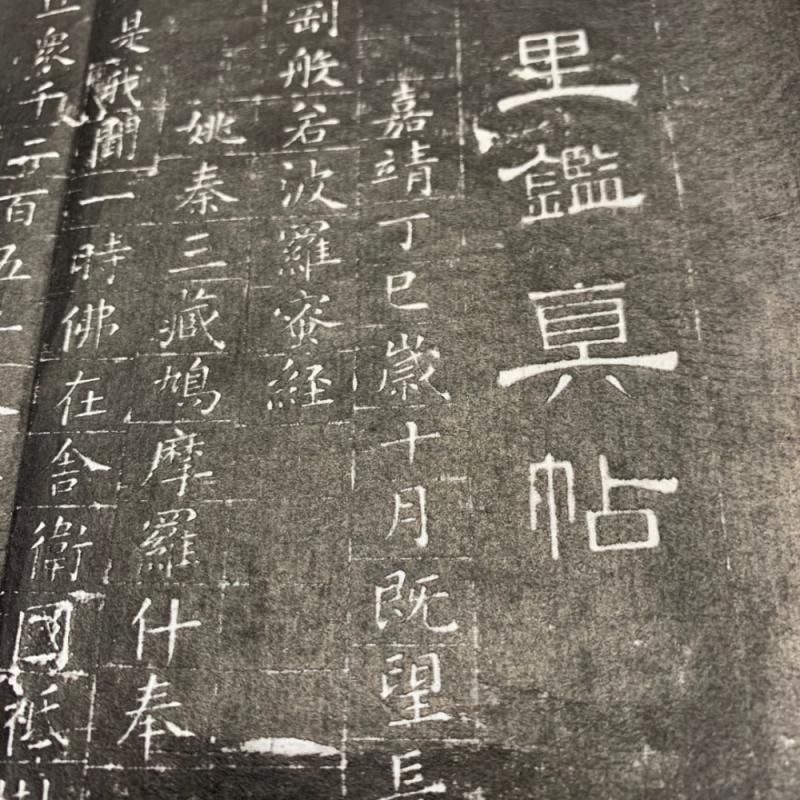 里鑑真帖
嘉靖丁巳歲十月既望長
剛般若波羅蜜経
姚秦三藏鳩摩羅什奉
是我聞一時佛在舍衛國祇
衆千二百五十